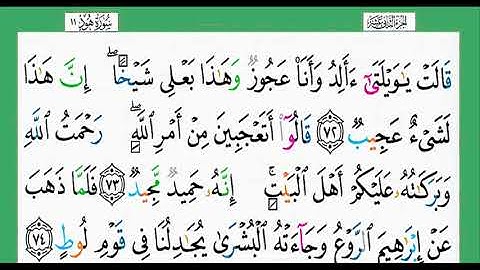 سُورَةُ هُودٍ ١١
الجزء الثاني عشر
قَالَتْ يَٰوَيْلَتَىٰٓ ءَأَلِدُ وَأَنَا۠ عَجُوزٌ وَهَٰذَا بَعْلِى شَيْخًا ۖ إِنَّ هَٰذَا
لَشَىْءٌ عَجِيبٌ ٧٢ قَالُوٓا۟ أَتَعْجَبِينَ مِنْ أَمْرِ ٱللَّهِ ۖ رَحْمَتُ ٱللَّهِ
وَبَرَكَٰتُهُۥ عَلَيْكُمْ أَهْلَ ٱلْبَيْتِ ۚ إِنَّهُۥ حَمِيدٌ مَّجِيدٌ ٧٣ فَلَمَّا ذَهَبَ
عَنْ إِبْرَٰهِيمَ ٱلرَّوْعُ وَجَآءَتْهُ ٱلْبُشْرَىٰ يُجَٰدِلُنَا فِى قَوْمِ لُوطٍ ٧٤